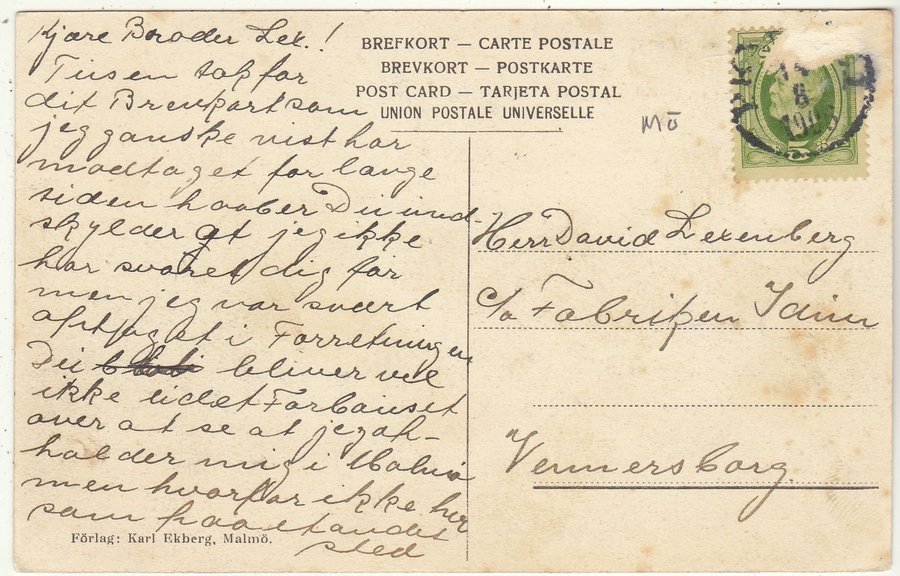 Kjære Broder Lex.!
Tusen tak for
dit Brevkort som
jeg ganske vist har
modtaget for lange
siden haaber Du und-
skylder at jeg ikke
har svaret dig før
men jeg var svært
optaget i Forretningen
Du bliver vel
ikke lidet Forbauset
over at se at jeg op-
holder mig i Malmø
men hvorfor ikke her
som paa et andet
sted
Förlag: Karl Ekberg, Malmö.
BREFKORT — CARTE POSTALE
BREVKORT — POSTKARTE
POST CARD — TARJETA POSTAL
UNION POSTALE UNIVERSELLE
MÖ
Herr David Lexenberg
c/o Fabriken
Vennersborg